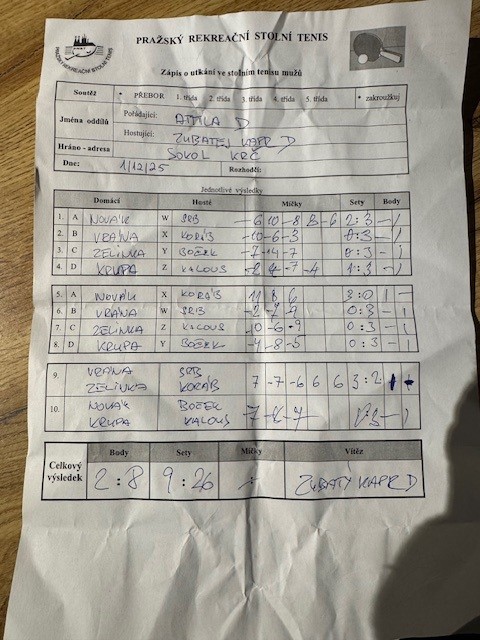 PRAŽSKÝ REKREAČNÍ STOLNÍ TENIS
PRAŽSKÝ REKREAČNÍ STOLNÍ TENIS
Zápis o utkání ve stolním tenisu mužů
Soutěž • PŘEBOR 1. třída 2. třída 3. třída 4. třída 5. třída • zakroužkuj
Jména oddílů Pořádající: ATTILA D
Hostující: ZUBATEJ KAPR D
Hráno - adresa SOKOL KRČ
Dne: 1/12/25 Rozhodčí:
Jednotlivé výsledky
Domácí Hosté Míčky Sety Body
1. A NOVÁK W SRB -6 10 -8 8 -6 2:3 - 1
2. B VRÁNA X KORÁB -10 -6 -3 0:3 - 1
3. C ZELINKA Y BOČEK -7 -14 -7 0:3 - 1
4. D KRUPA Z KALOUS -7 -4 1:3 - 1
5. A NOVÁK X KORÁB 11 8 6 3:0 1 -
6. B VRÁNA W SRB -2 -7 -9 0:3 - 1
7. C ZELINKA Z KALOUS -10 -6 -9 0:3 - 1
8. D KRUPA Y BOČEK -4 -8 -5 0:3 - 1
9. VRÁNA SRB
ZELINKA KORÁB 7 -7 -6 6 6 3:2 1
10. NOVÁK BOČEK
KRUPA KALOUS -7 -7 :3 - 1
Body Sety Míčky Vítěz
Celkový výsledek 2:8 9:26 ZUBATÝ KAPR D